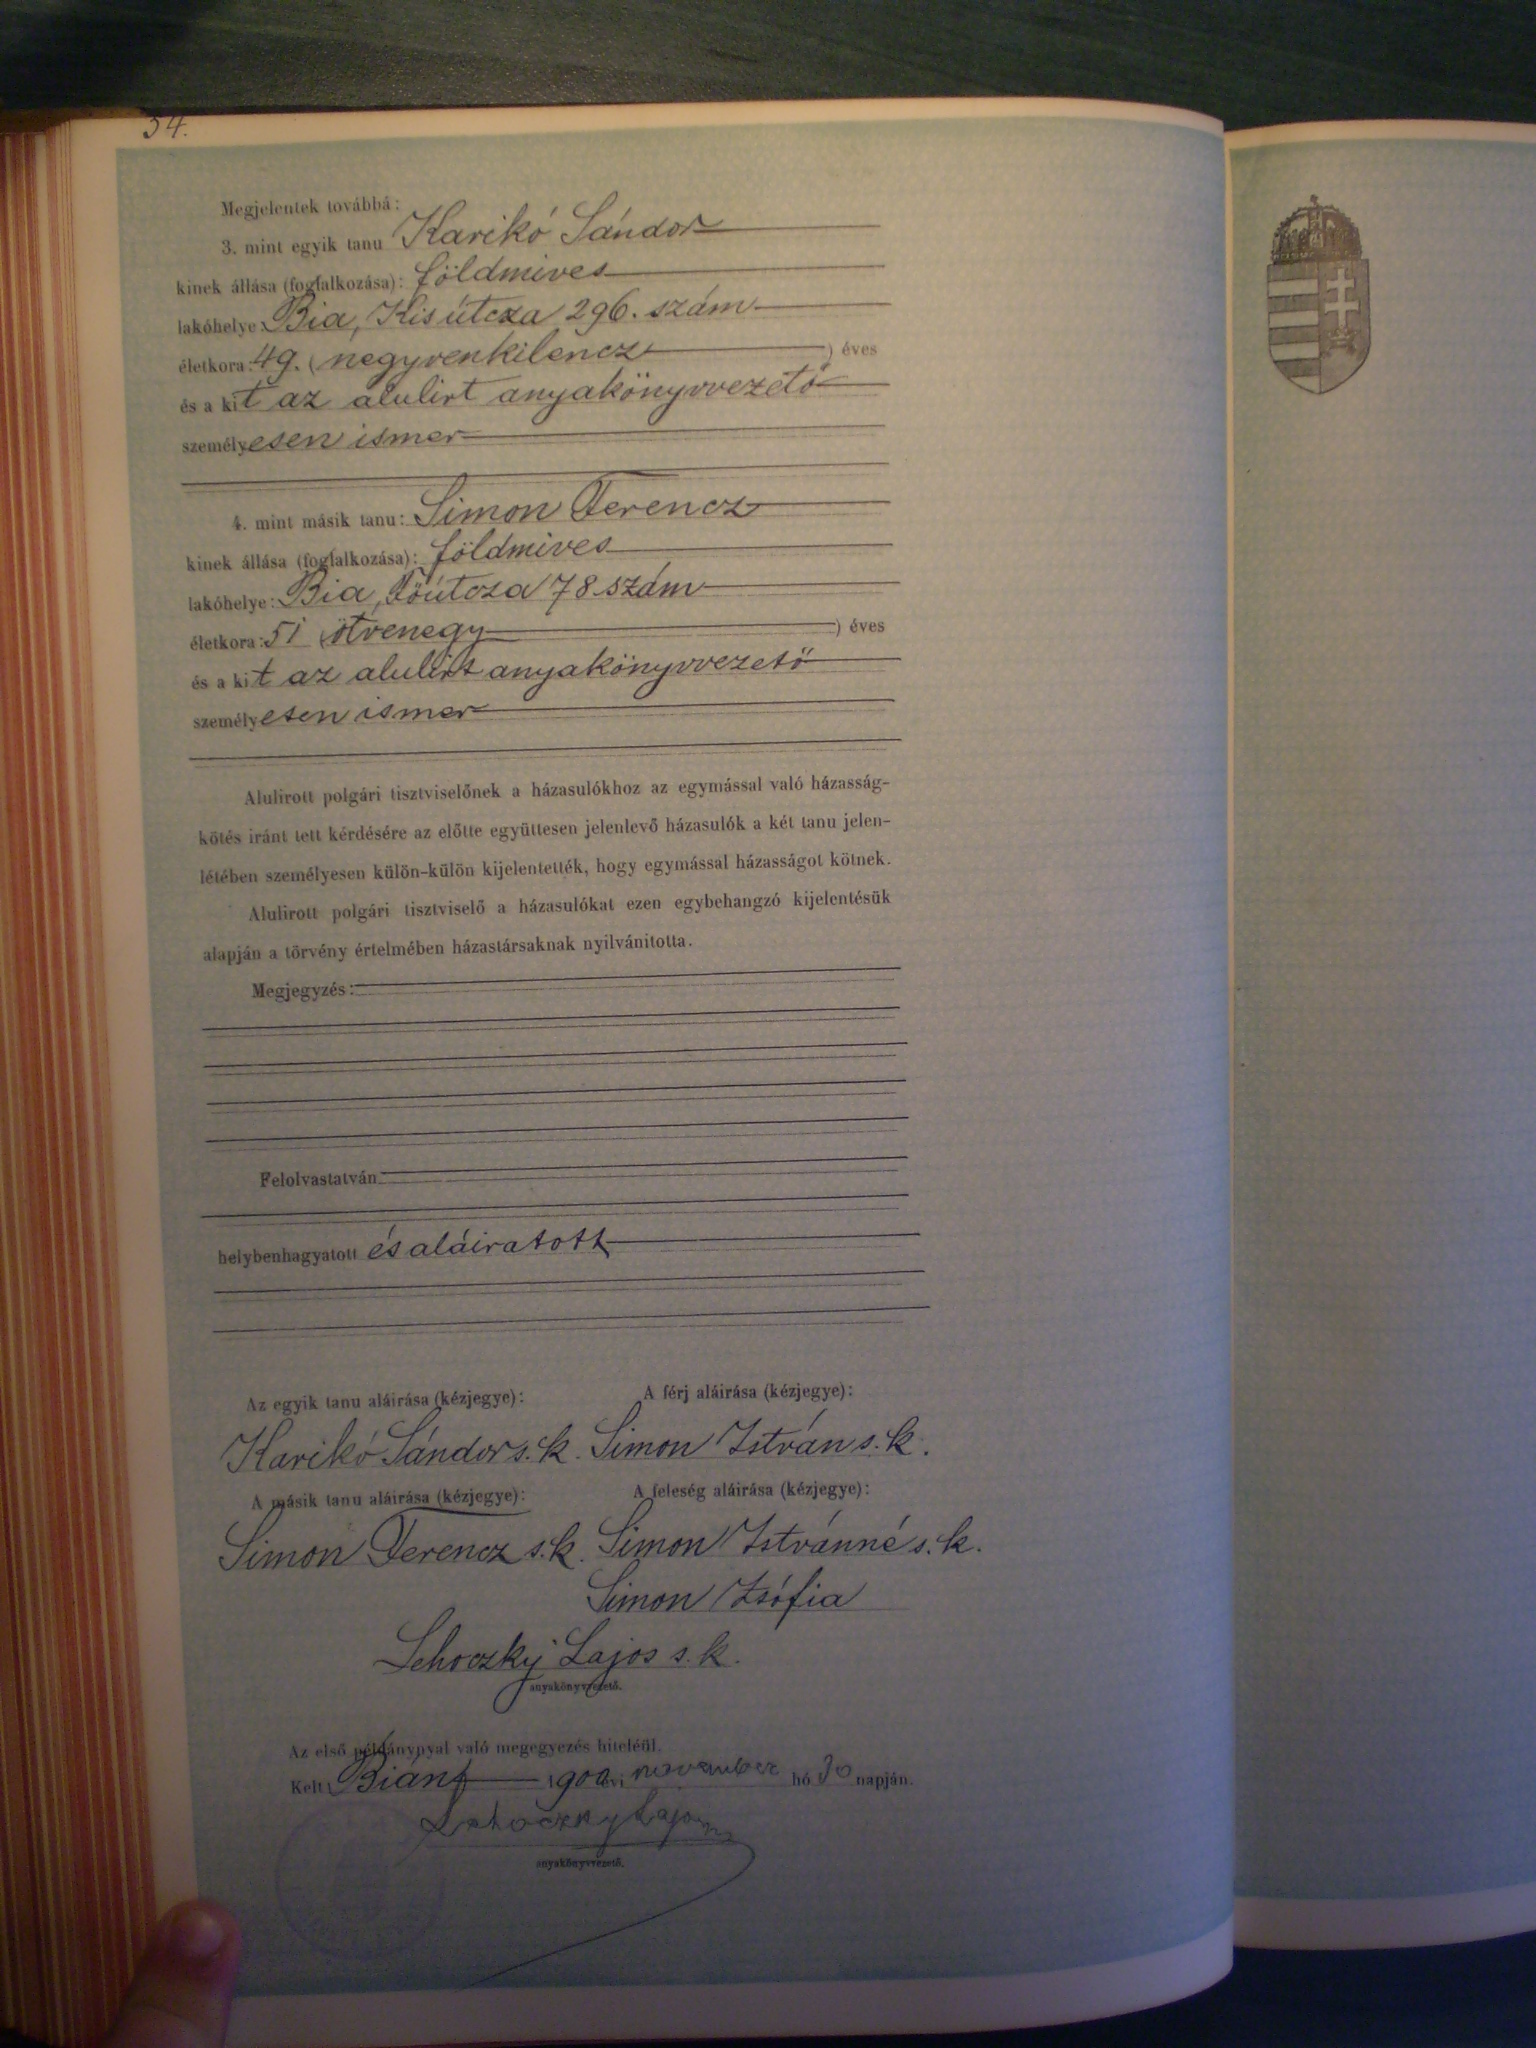 34.
Megjelentek továbbá:
3. mint egyik tanu Karikó Sándor
kinek állása (foglalkozása): földmives
lakóhelye: Bia, Kisútcza 296. szám
életkora: 49. (negyvenkilencz) éves
és a kit az alulirt anyakönyvvezető
személyesen ismer
4. mint másik tanu: Simon Ferencz
kinek állása (foglalkozása): földmives
lakóhelye: Bia, Főútcza 78 szám
életkora: 51 (ötvenegy) éves
és a kit az alulirt anyakönyvvezető
személyesen ismer
Alulirott polgári tisztviselőnek a házasulókhoz az egymással való házasság-
kötés iránt tett kérdésére az előtte együttesen jelenlevő házasulók a két tanu jelen-
létében személyesen külön-külön kijelentették, hogy egymással házasságot kötnek.
Alulirott polgári tisztviselő a házasulókat ezen egybehangzó kijelentésük
alapján a törvény értelmében házastársaknak nyilvánitotta.
Megjegyzés:
Felolvastatván
helybenhagyatott és aláiratott
Az egyik tanu aláirása (kézjegye): A férj aláirása (kézjegye):
Karikó Sándor s. k. Simon István s. k.
A másik tanu aláirása (kézjegye): A feleség aláirása (kézjegye):
Simon Ferencz s. k. Simon Istvánné s. k.
Simon Zsófia
Lehoczky Lajos s. k.
anyakönyvvezető.
Az első példánynyal való megegyezés hiteléül.
Kelt Bián 1900 évi november hó 30 napján.
Lehoczky Lajos
anyakönyvvezető.